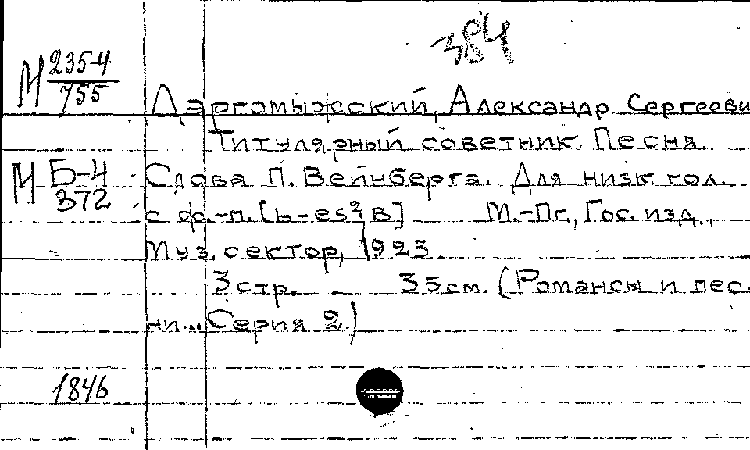 384
М 235-4
755
Даргомыжский, Александр Сергееви
Титулярный советник. Песня.
М Б-4
372
Слова П. Вейнберга. Для низк. гол.
с ф.-п. [b-es² B] М.-Пг., Гос. изд.,
Муз. сектор, 1923.
3 стр. - 35 см. (Романсы и пес-
ни... Серия 2.)
1846